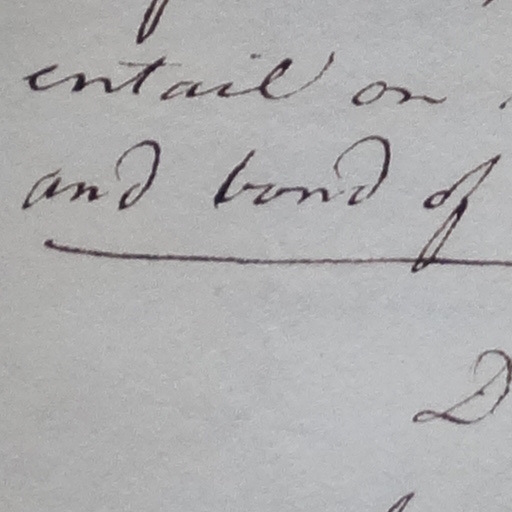 entail on
and bond of
D